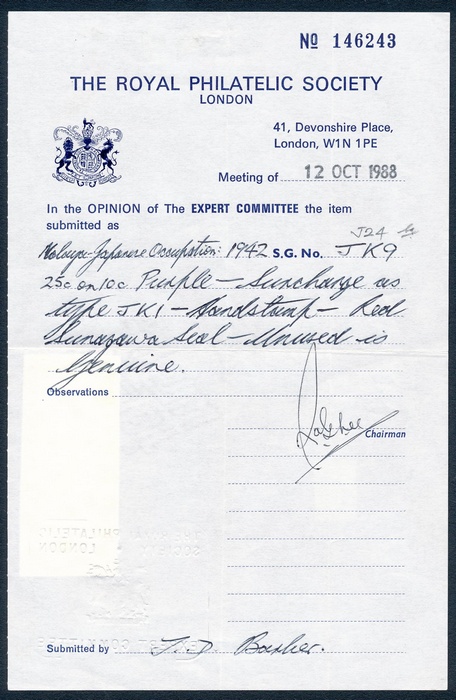 Nº 146243
THE ROYAL PHILATELIC SOCIETY
LONDON
41, Devonshire Place,
London, W1N 1PE
Meeting of 12 OCT 1988
In the OPINION of The EXPERT COMMITTEE the item
J24
submitted as
Malaya-Japanese Occupation: 1942 S.G. No. JK9
25c on 10c Purple – Surcharge as
type JK1 – Handstamp – Red
Sunagawa Seal – Unused is
Genuine.
Observations
Chairman
THE ROYAL PHILATELIC
SOCIETY LONDON
EXPERT COMMITTEE
Submitted by J. D. Barker.